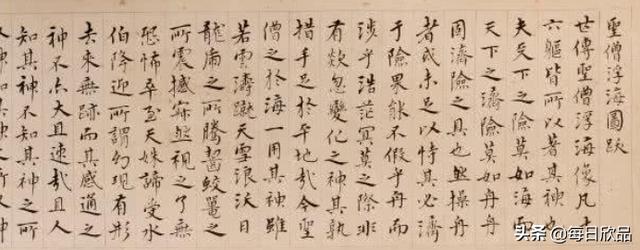 聖僧浮海圖跋
世傳聖僧浮海像凡十
六軀皆所以著其神也
夫天下之險莫如海而
天下之濟險莫如舟舟
固濟險之具也然操舟
者或未足以恃其必濟
于險果能不假乎舟而
涉乎浩茫冥莫之際非
有欻忽變化之神其孰
措手足於平地哉今聖
僧之於海一用其神雖
若雲濤蹴天雪浪沃日
龍之所騰齧鮫鼉之
所震撼寂然視之了無
恐怖卒至天姝諦受水
伯降迎所謂幻現有形
去來無跡而其感通之
神不亦大且速哉且人
知其神不知其神之所
头条 @每日欣品